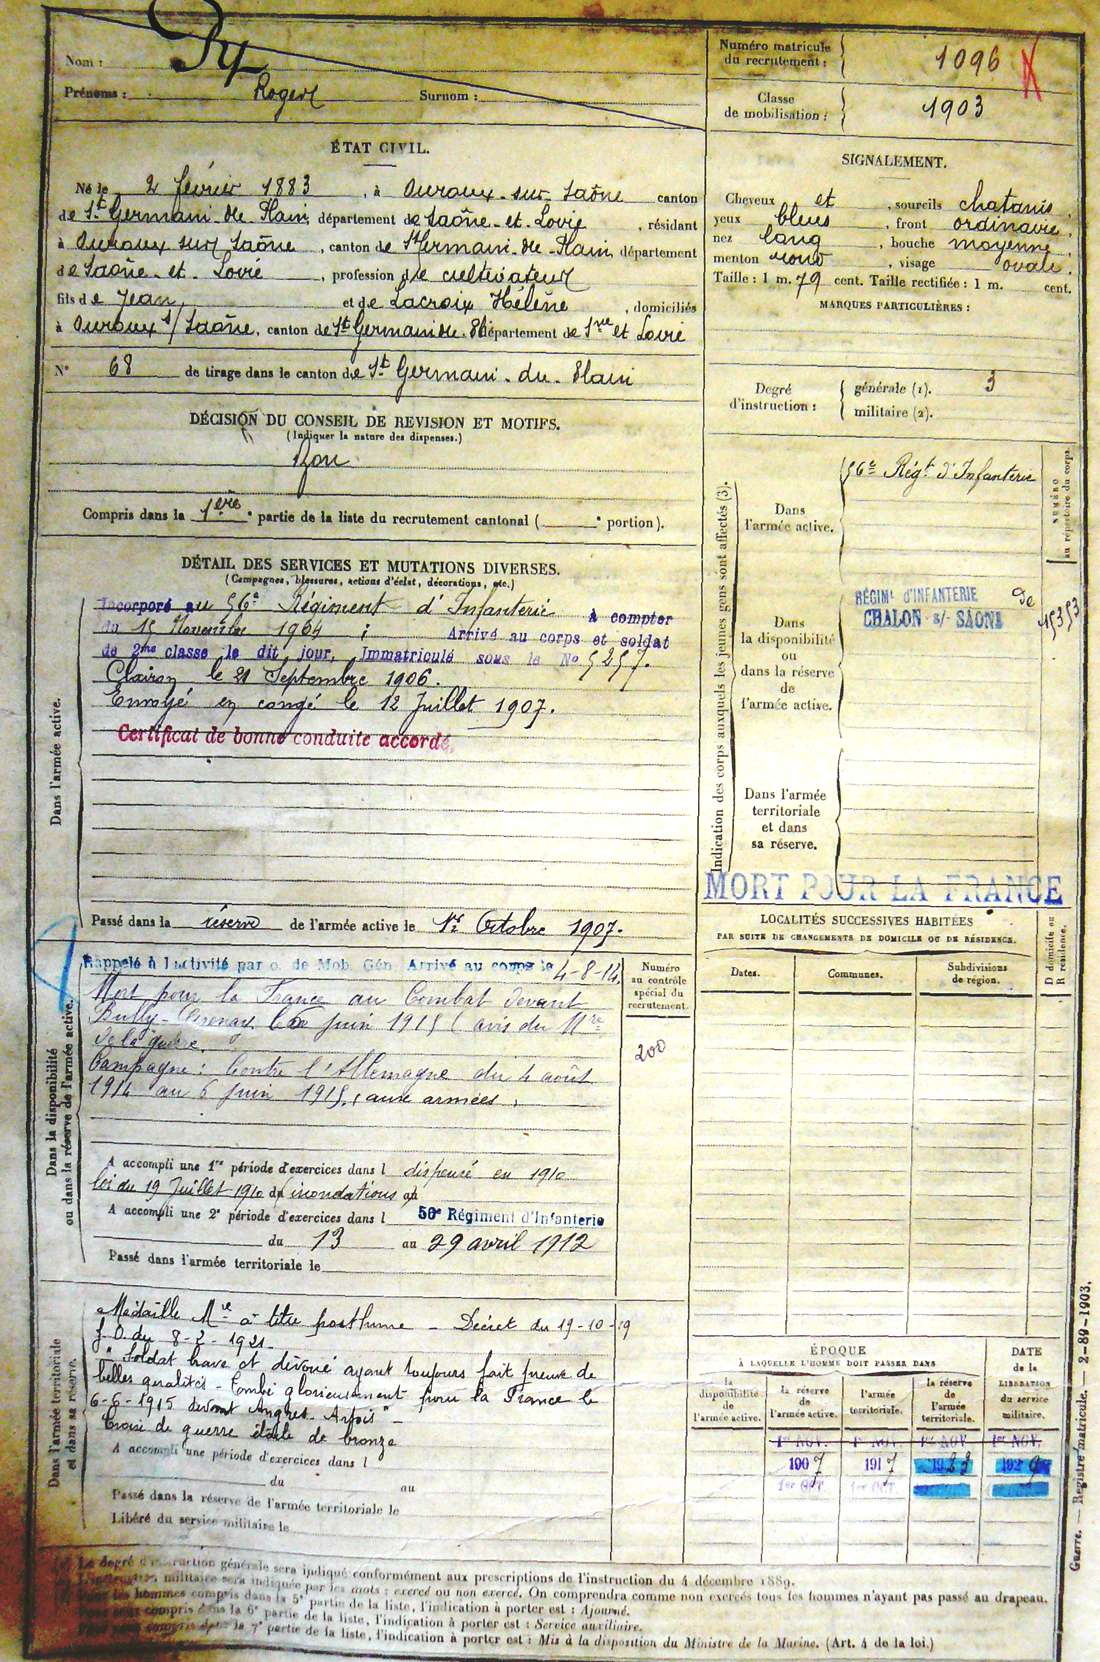 Nom : Py
Prénoms : Roger Surnom :
Numéro matricule du recrutement : 1096
Classe de mobilisation : 1903
ÉTAT CIVIL.
Né le 2 février 1883, à Ouroux-sur-Saône canton
de St Germain-du-Plain, département de Saône-et-Loire, résidant
à Ouroux sur Saône, canton de St Germain-du-Plain, département
de Saône-et-Loire, profession de cultivateur
fils de Jean et de Lacroix Hélène, domiciliés
à Ouroux s/ Saône, canton de St Germain du Pl. département de Sne et Loire
N° 68 de tirage dans le canton de St Germain-du-Plain
SIGNALEMENT.
Cheveux et, sourcils chatains,
yeux bleus, front ordinaire,
nez long, bouche moyenne,
menton rond, visage ovale.
Taille : 1 m. 79 cent. Taille rectifiée : 1 m. cent.
MARQUES PARTICULIÈRES :
Degré d'instruction : générale (1). 3
militaire (2).
DÉCISION DU CONSEIL DE REVISION ET MOTIFS.
(Indiquer la nature des dispenses.)
Bon
Compris dans la 1ère partie de la liste du recrutement cantonal ( e portion).
DÉTAIL DES SERVICES ET MUTATIONS DIVERSES.
(Campagnes, blessures, actions d'éclat, décorations, etc.)
Dans l'armée active.
Incorporé au 56e Régiment d'Infanterie à compter
du 15 Novembre 1904 ; Arrivé au corps et soldat
de 2me classe le dit jour, Immatriculé sous le No 5257.
Clairon le 21 Septembre 1906.
Envoyé en congé le 12 Juillet 1907.
Certificat de bonne conduite accordé.
Passé dans la réserve de l'armée active le 1er Octobre 1907.
Indication des corps auxquels les jeunes gens sont affectés (3).
NUMÉRO au répertoire du corps.
Dans l'armée active.
56e Régt d'Infanterie
Dans la disponibilité ou dans la réserve de l'armée active.
RÉGIMt D'INFANTERIE de
CHALON s/- SAONE
15353
Dans l'armée territoriale et dans sa réserve.
MORT POUR LA FRANCE
Dans la disponibilité ou dans la réserve de l'armée active.
Rappelé à l'activité par o. de Mob. Gén. Arrivé au corps le 4-8-14.
Mort pour la France au Combat devant
Bully-Grenay le 6 juin 1915 (avis du Mre
de la guerre.
Campagne : Contre l'Allemagne du 4 août
1914 au 6 juin 1915, aux armées.
Numéro au contrôle spécial du recrutement.
200
A accompli une 1re période d'exercices dans l dispensé en 1910
loi du 19 Juillet 1910 (inondations) au
A accompli une 2e période d'exercices dans l 56e Régiment d'Infanterie
du 13 au 29 avril 1912
Passé dans l'armée territoriale le
LOCALITÉS SUCCESSIVES HABITÉES
PAR SUITE DE CHANGEMENTS DE DOMICILE OU DE RÉSIDENCE.
Dates. Communes. Subdivisions de région. D domicile ou R résidence.
Dans l'armée territoriale et dans sa réserve.
Médaille Mre à titre posthume - Décret du 19-10-19
J.O. du 8-2-1921
"Soldat brave et dévoué ayant toujours fait preuve de
belles qualités - Tombé glorieusement pour la France le
6-6-1915 devant Angres-Artois" -
Croix de guerre étoile de bronze
A accompli une période d'exercices dans l
du au
Passé dans la réserve de l'armée territoriale le
Libéré du service militaire le
ÉPOQUE
À LAQUELLE L'HOMME DOIT PASSER DANS
la disponibilité de l'armée active.
la réserve de l'armée active.
l'armée territoriale.
la réserve de l'armée territoriale.
DATE de la LIBÉRATION du service militaire.
1er NOV. 1er NOV. 1er NOV. 1er NOV.
1907 1917 1923 1929
1er OCT. 1er OCT.
Guerre. — Registre matricule. — 2-89-1903.
(1) Le degré d'instruction générale sera indiqué conformément aux prescriptions de l'instruction du 4 décembre 1889.
L'instruction militaire sera indiquée par les mots : exercé ou non exercé. On comprendra comme non exercés tous les hommes n'ayant pas passé au drapeau.
Pour les hommes compris dans la 5e partie de la liste, l'indication à porter est : Ajourné.
Pour ceux compris dans la 6e partie de la liste, l'indication à porter est : Service auxiliaire.
Pour ceux compris dans la 7e partie de la liste, l'indication à porter est : Mis à la disposition du Ministre de la Marine. (Art. 4 de la loi.)